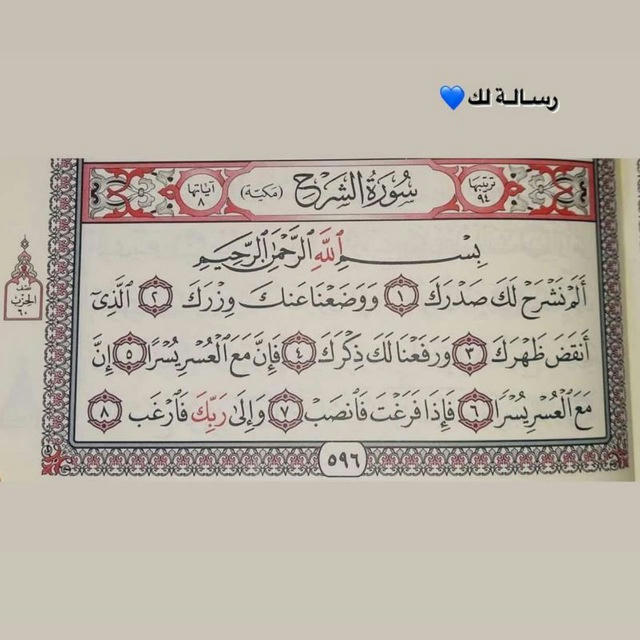 رسالة لك💙
ترتيبها ٩٤ سُورَةُ الشَّرْح (مكيّة) آياتها ٨
بِسْمِ اللَّهِ الرَّحْمَٰنِ الرَّحِيمِ
أَلَمْ نَشْرَحْ لَكَ صَدْرَكَ ١ وَوَضَعْنَا عَنكَ وِزْرَكَ ٢ الَّذِىٓ
أَنقَضَ ظَهْرَكَ ٣ وَرَفَعْنَا لَكَ ذِكْرَكَ ٤ فَإِنَّ مَعَ الْعُسْرِ يُسْرًا ٥ إِنَّ
مَعَ الْعُسْرِ يُسْرًا ٦ فَإِذَا فَرَغْتَ فَانصَبْ ٧ وَإِلَىٰ رَبِّكَ فَارْغَب ٨
٥٩٦
نصف
الحزب
٦٠